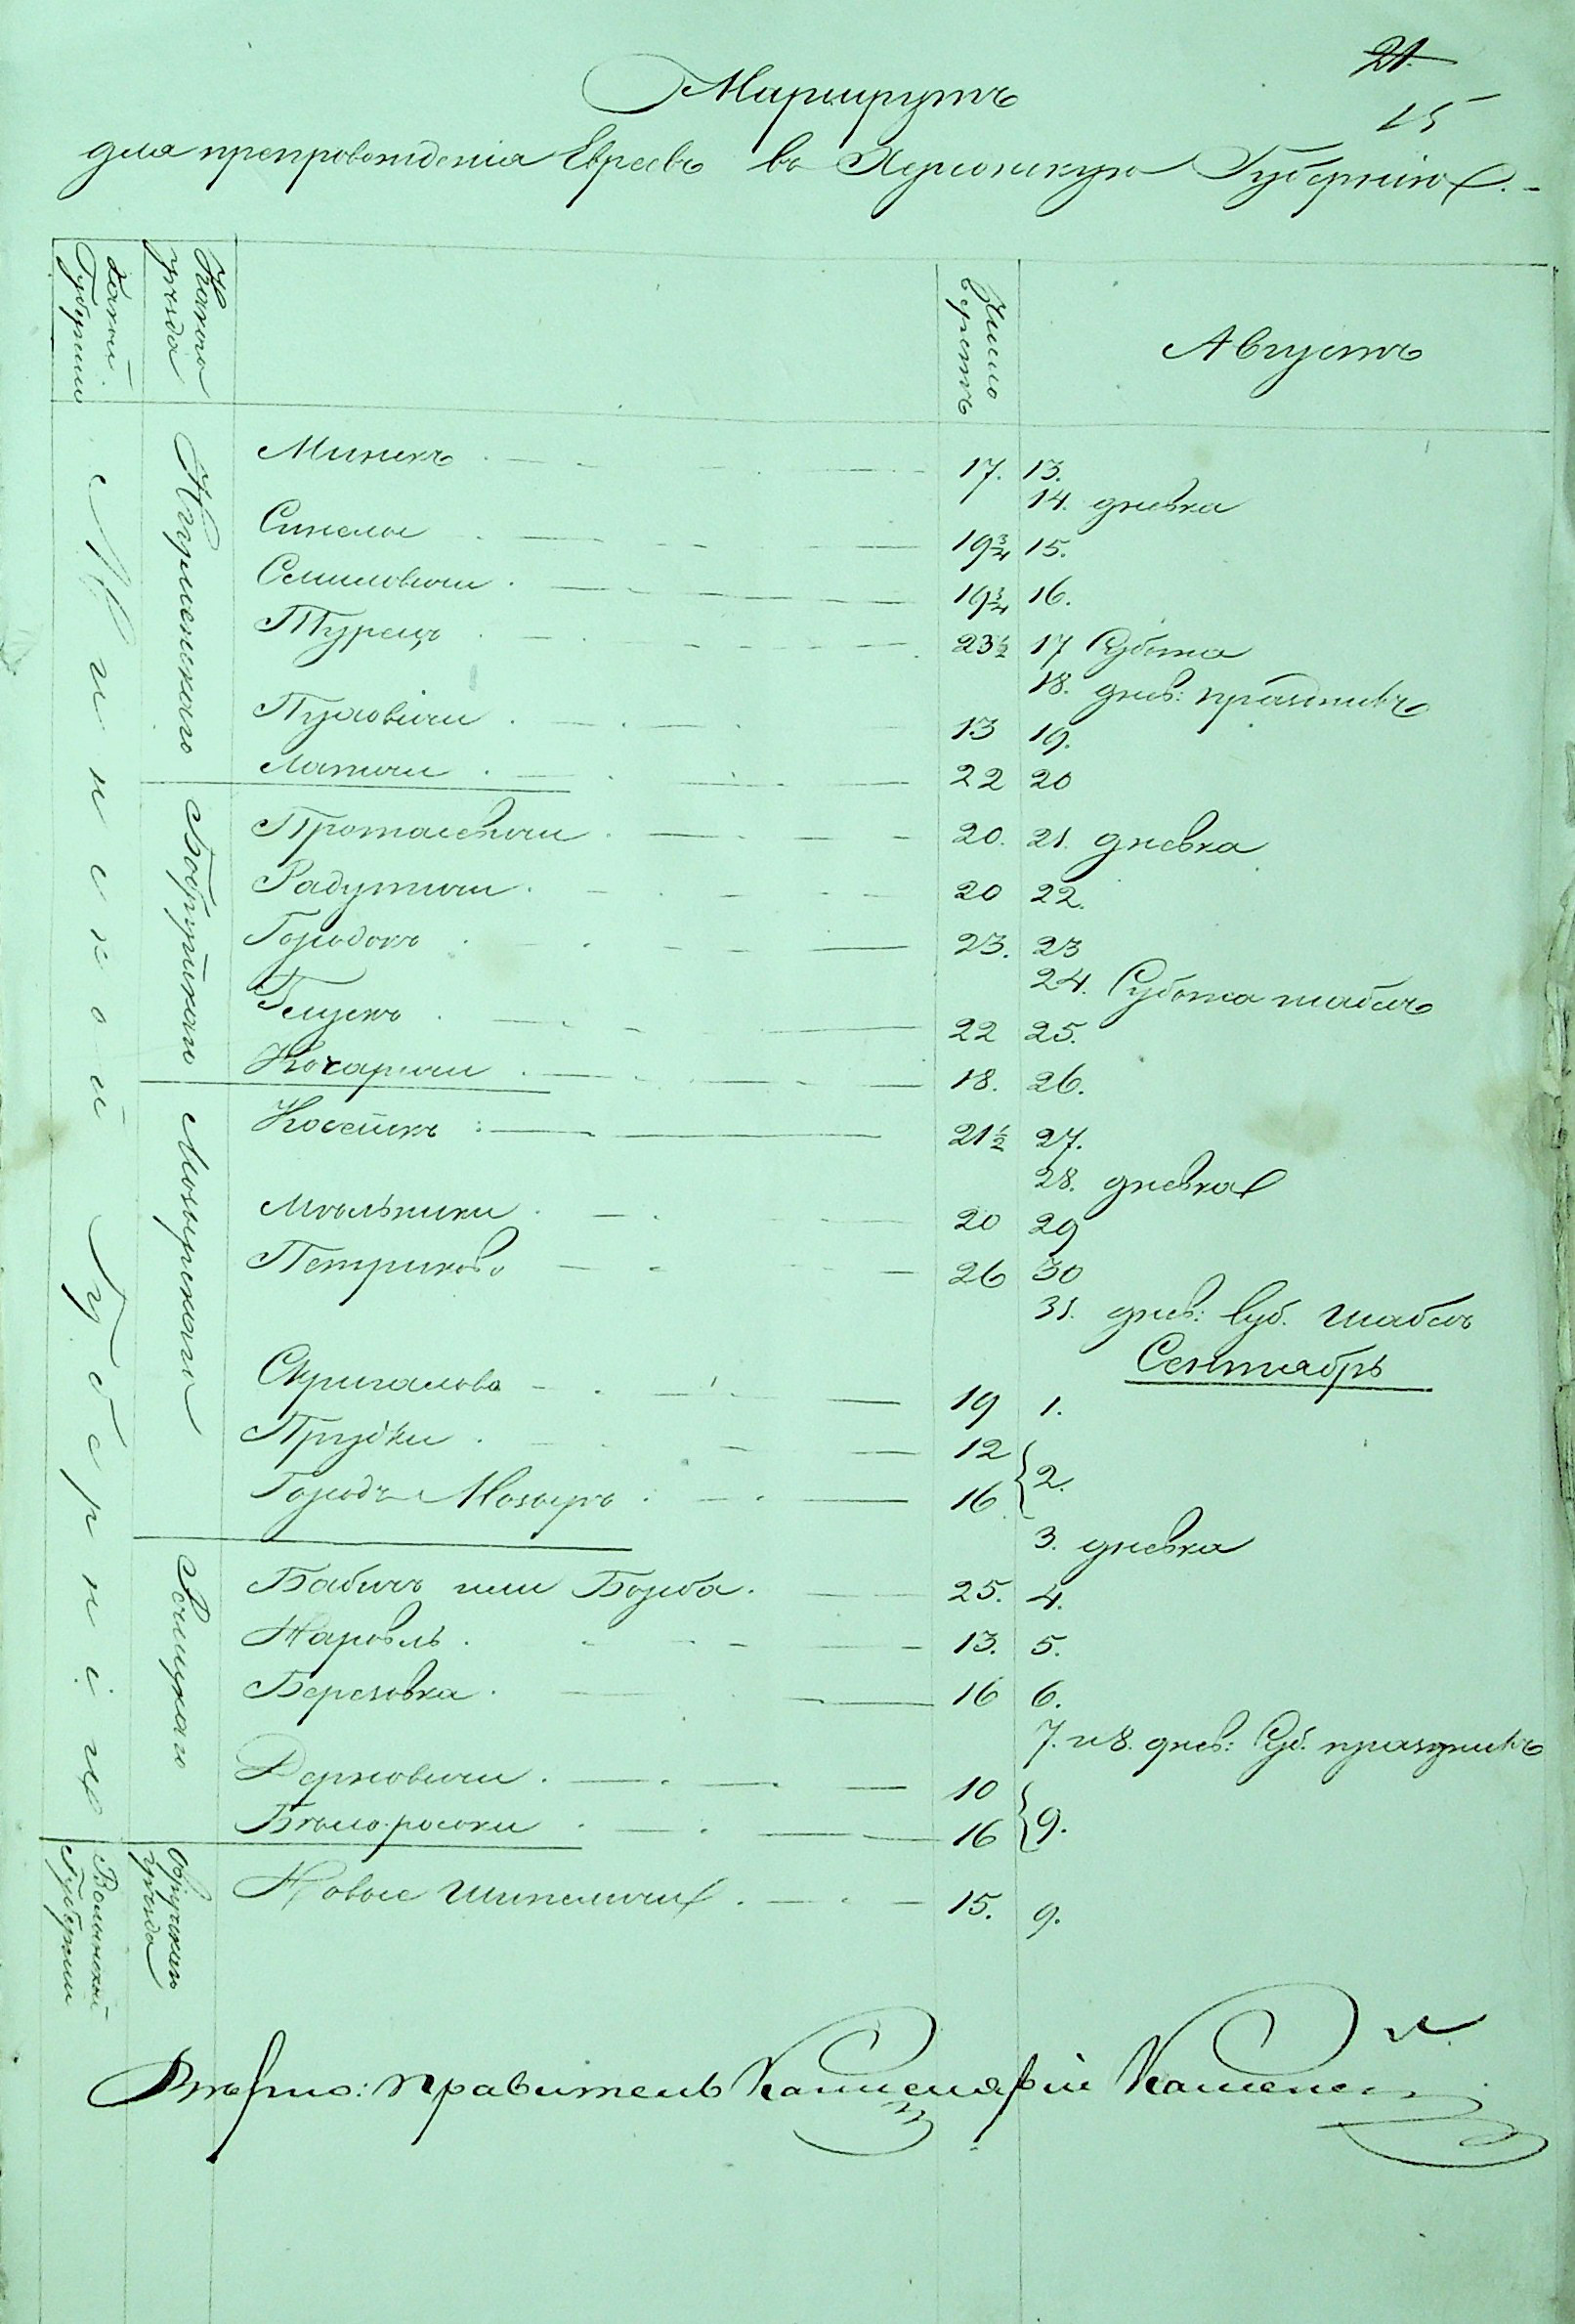 21.
15
Маршрутъ
для препровожденія Евреевъ въ Херсонскую Губернію.
Какой Губерніи
Какого уезда
Число верстъ
Августъ
Минской Губерніи
Игуменскаго
Минскъ 17. 13.
14. дневка
Синелое 19 3/4 15.
Семиловичи 19 3/4 16.
Турецъ 23 1/2 17 Субота
18. днев: праздникъ
Пуховичи 13 19.
Лапичи 22 20
Бобруйскаго
Протасевичи 20. 21. дневка
Радутичи 20 22.
Городокъ 23. 23
24. Субота шабасъ
Глускъ 22 25.
Кочаричи 18. 26.
Мозырскаго
Косейскъ 21 1/2 27.
28. дневка
Мольники 20 29
Петриково 26 30
31. днев: Суб. шабасъ
Сентябрь
Скригалово 19 1.
Прудки 12
2.
Городъ Мозырь 16
3. дневка
Речицкаго
Бабичъ или Борба. 25. 4.
Наровль 13. 5.
Березовка 16 6.
7. и 8. днев: Суб. праздникъ
Дерновичи 10
9.
Белосороки 16
Волынской Губерніи
Овручскаго уезда
Новые Шипеличи 15. 9.
Верно: Правитель Канцеляріи